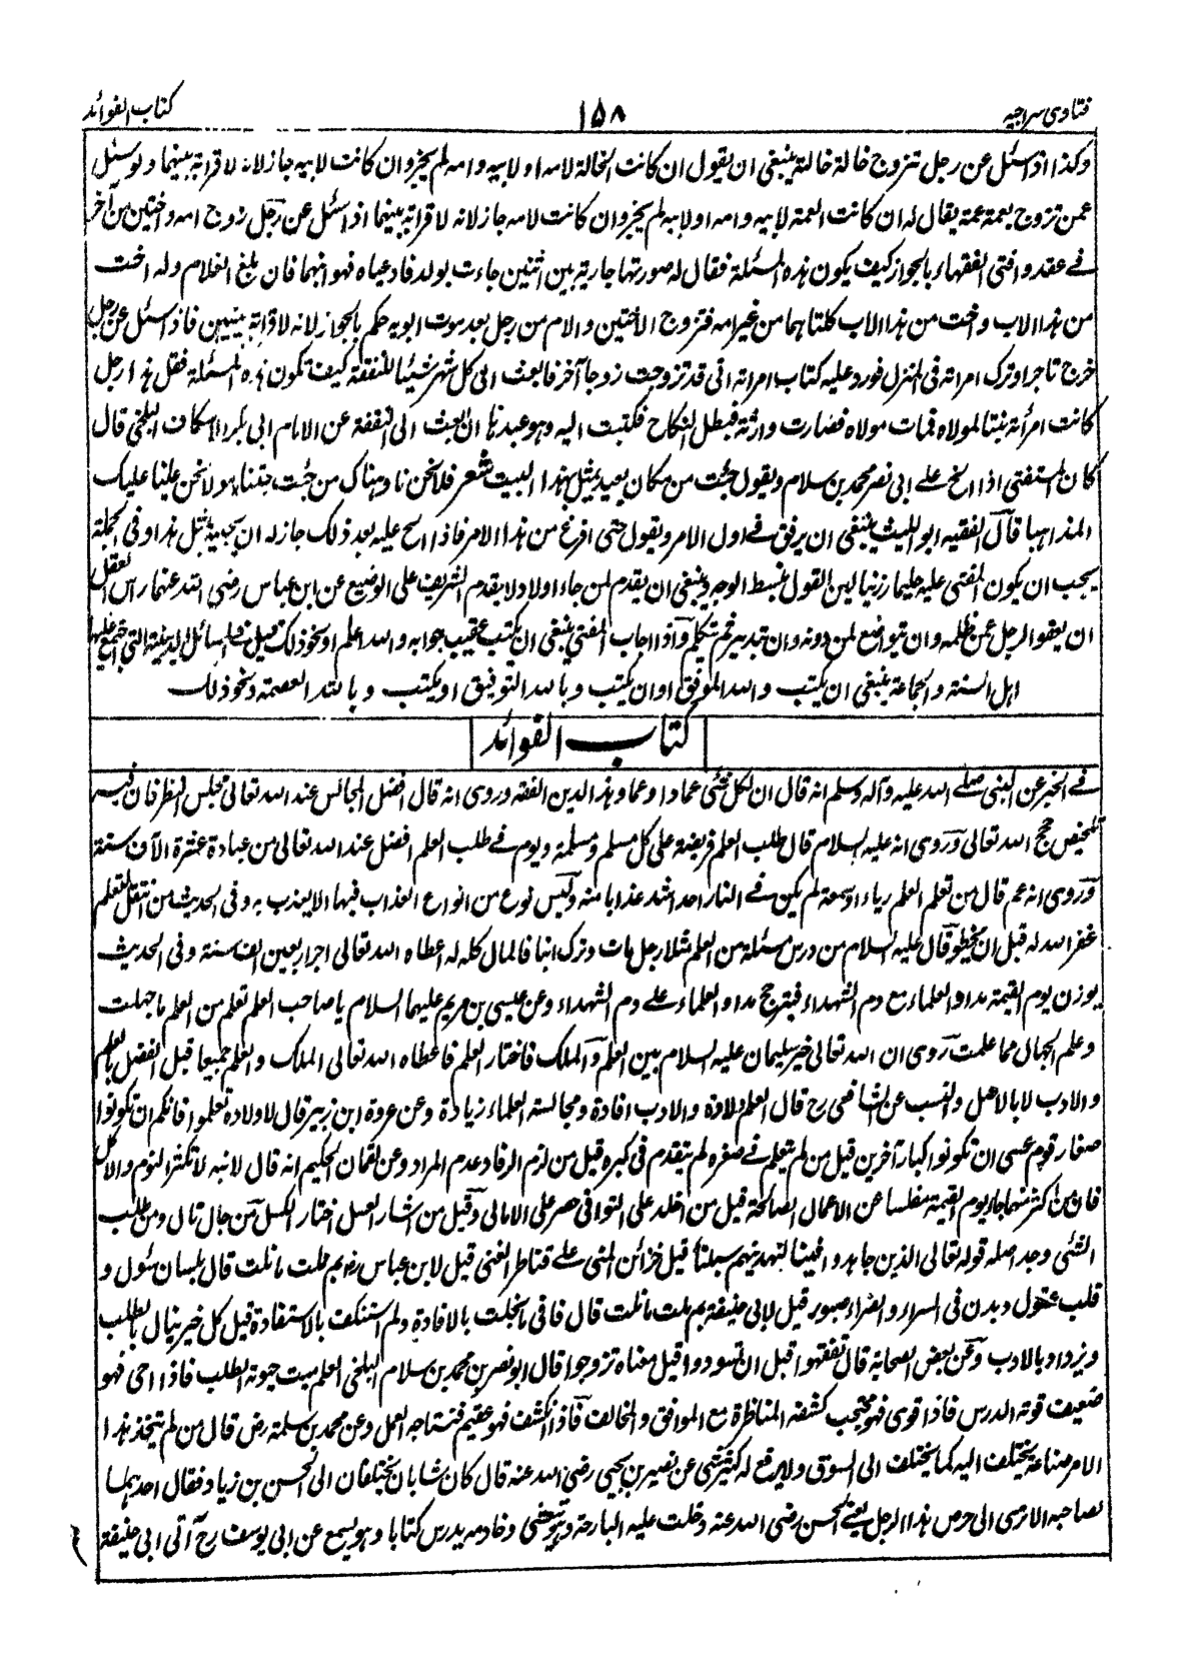 فتاوی سراجیه ۱۵۸ کتاب الفوائد
وکذا اذ اسئل عن رجل تزوج خالة خالة ینبغی ان یقول ان کانت الخالة لامه او لابیه وامه لم یجز وان کانت لابیه جاز لانه لا قرابة بینهما ولو سئل
عمن تزوج بعمة عمة یقال له ان کانت العمة لابیه وامه او لابیه لم یجز وان کانت لامه جاز لانه لا قرابة بینهما اذ اسئل عن رجل زوج امه واختین من آخر
فے عقد وافتی الفقهاء بالجواز کیف یکون هذه المسئلة فقال له صورتها جاریة بین اثنین جاءت بولد فادعیاه فهو ابنهما فان بلغ الغلام وله اخت
من هذا الاب واخت من هذا الاب کلتاهما من غیر امه فتزوج الاختین والام من رجل بعد موت ابویه حکم بالجواز لانه لا قرابة بینهن فاذ اسئل عن رجل
خرج تاجرا وترک امراته فی المنزل فورد علیه کتاب امراته انی قد تزوجت زوجا آخر فابعث الی کل شهر شیئا للنفقة کیف تکون هذه المسئلة فقل هذا رجل
کانت امرأته بنتا لمولاه فمات مولاه فصارت وارثة فبطل النکاح فکتبت الیه وهو عبدها ان ابعث الی النفقة عن الامام ابی بکر الاسکاف البلخی قال
کان المستفتی اذا الح علے ابی نصر محمد بن سلام ویقول جئت من مکان بعید یتمثل بهذا البیت شعر فلا نحن نادیناک من حیث جئتنا ولا نحن علینا علیک
المذاهبا قال الفقیه ابو اللیث ینبغی ان یرفق فے اول الامر ویقول حتی افرغ من هذا الامر فاذا الح علیه بعد ذلک جاز له ان یجیبه بمثل هذا وفی الجملة
یجب ان یکون المفتی علیه حلیما رزینا لین القول منبسط الوجه وینبغی ان یقدم لمن جاء اولا ولا یقدم الشریف علی الوضیع عن ابن عباس رضی الله عنهما راس العقل
ان یعفو الرجل عمن ظلمه وان یتواضع لمن دونه وان یتدبر ثم یتکلم واذا اجاب المفتی ینبغی ان یکتب عقیب جوابه والله اعلم او نحو ذلک قیل المسائل الدینیة التی اجتمع علیها
اهل السنة والجماعة ینبغی ان یکتب والله الموفق او ان یکتب وبالله التوفیق او یکتب وبالله العصمة ونحو ذلک
کتاب الفوائد
فے الخبر عن النبی صلے الله علیه وآله وسلم انه قال ان لکل شئی عمادا وعماد هذا الدین الفقه وروی انه قال افضل المجالس عند الله تعالی مجلس النظر فان فیه
تلخیص حجج الله تعالی وروی انه علیه السلام قال طلب العلم فریضة علی کل مسلم ومسلمة ویوم فے طلب العلم افضل عند الله تعالی من عبادة عشرة الآف سنة
وروی انه عم قال من تعلم العلم ریاء او سمعة لم یکن فے النار احد اشد عذابا منه ولیس نوع من انواع العذاب فیها الا یعذب به وفی الحدیث من انتقل لتعلم
غفر الله له قبل ان یخطو قال علیه السلام من درس مسئلة من العلم مثلا رجل مات وترک ابنا فالمال کله له اعطاه الله تعالی اجر اربعین الف سنة وفی الحدیث
یوزن یوم القیمة مداد العلماء مع دم الشهداء فیترجح مداد العلماء علے دم الشهداء وعن عیسی بن مریم علیهما السلام یا صاحب العلم تعلم من العلم ما جهلت
وعلم الجهال مما علمت روی ان الله تعالی خیر سلیمان علیه السلام بین العلم والملک فاختار العلم فاعطاه الله تعالی الملک والعلم جمیعا قیل الفضل بالعلم
والادب لا بالاصل والنسب عن الشافعی رح قال العلم ولادة والادب افادة ومجالسة العلماء زیادة وعن عروة ابن زبیر قال لاولاده تعلموا فانکم ان تکونوا
صغار قوم عسی ان تکونوا کبار آخرین قیل من لم یتعلم فے صغره لم یتقدم فی کبره قیل من لزم الرقاد عدم المراد وعن لقمان الحکیم انه قال لابنه لا تکثر النوم والاکل
فان من اکثر منهما جاء یوم القیمة مفلسا عن الاعمال الصالحة قیل من اخلد علی التوانی حصر علی الامانی وقیل من اشار العسل اختار الکسل من جال نال ومن طلب
الشئی وجد اصله قوله تعالی الذین جاهدوا فینا لنهدینهم سبلنا قیل خزائن المنی علے قناطر الغنی قیل لابن عباس رض بم نلت ما نلت قال بلسان سئول و
قلب عقول وبدن فی السراء والضراء صبور قیل لابی حنیفة بم نلت ما نلت قال فانی ما بخلت بالافادة ولم استنکف بالاستفادة قیل کل خیر ینال بالطلب
ویزداد بالادب وعن بعض الصحابة قال تفقهوا قبل ان تسودوا قیل معناه تزوجوا قال ابو نصر بن محمد بن سلام البلخی العلم میت حیوته الطلب فاذا احی فهو
ضعیف قوته الدرس فاذا قوی فهو محتجب کشفه المناظرة مع الموافق والمخالف فاذا انکشف فهو عقیم فنتاجه العمل وعن محمد بن سلمة رض قال من لم یتخذ هذا
الامر صناعة یختلف الیه کما یختلف الی السوق ولا یرفع له کثیر شئی عن نصیر بن یحیی رضی الله عنه قال کان شابان یختلفان الی الحسن بن زیاد فقال احدهما
لصاحبه الا تری الی حرص هذا الرجل یعنی الحسن رضی الله عنه دخلت علیه البارحة وهو یتعشی وخادمه یدرس کتابا وهو یسمع عن ابی یوسف رح آتی ابی حنیفة